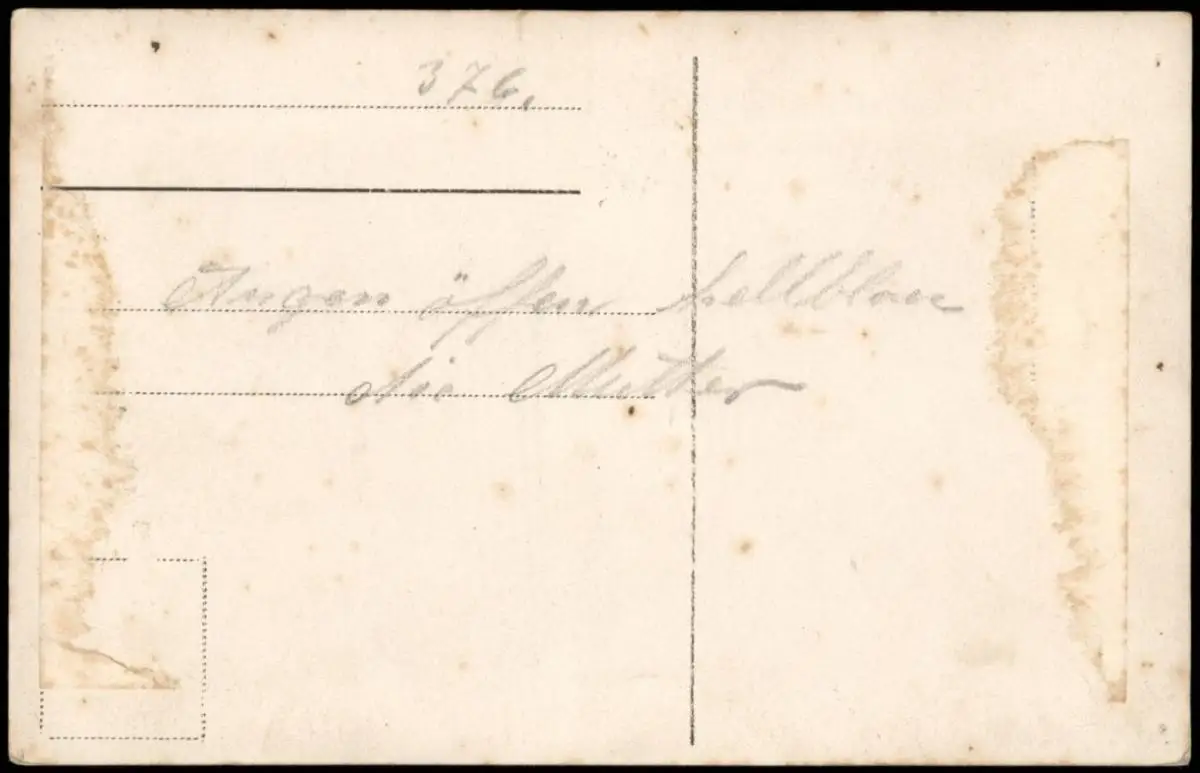 376.
Augen öffen hellblau
die Mutter